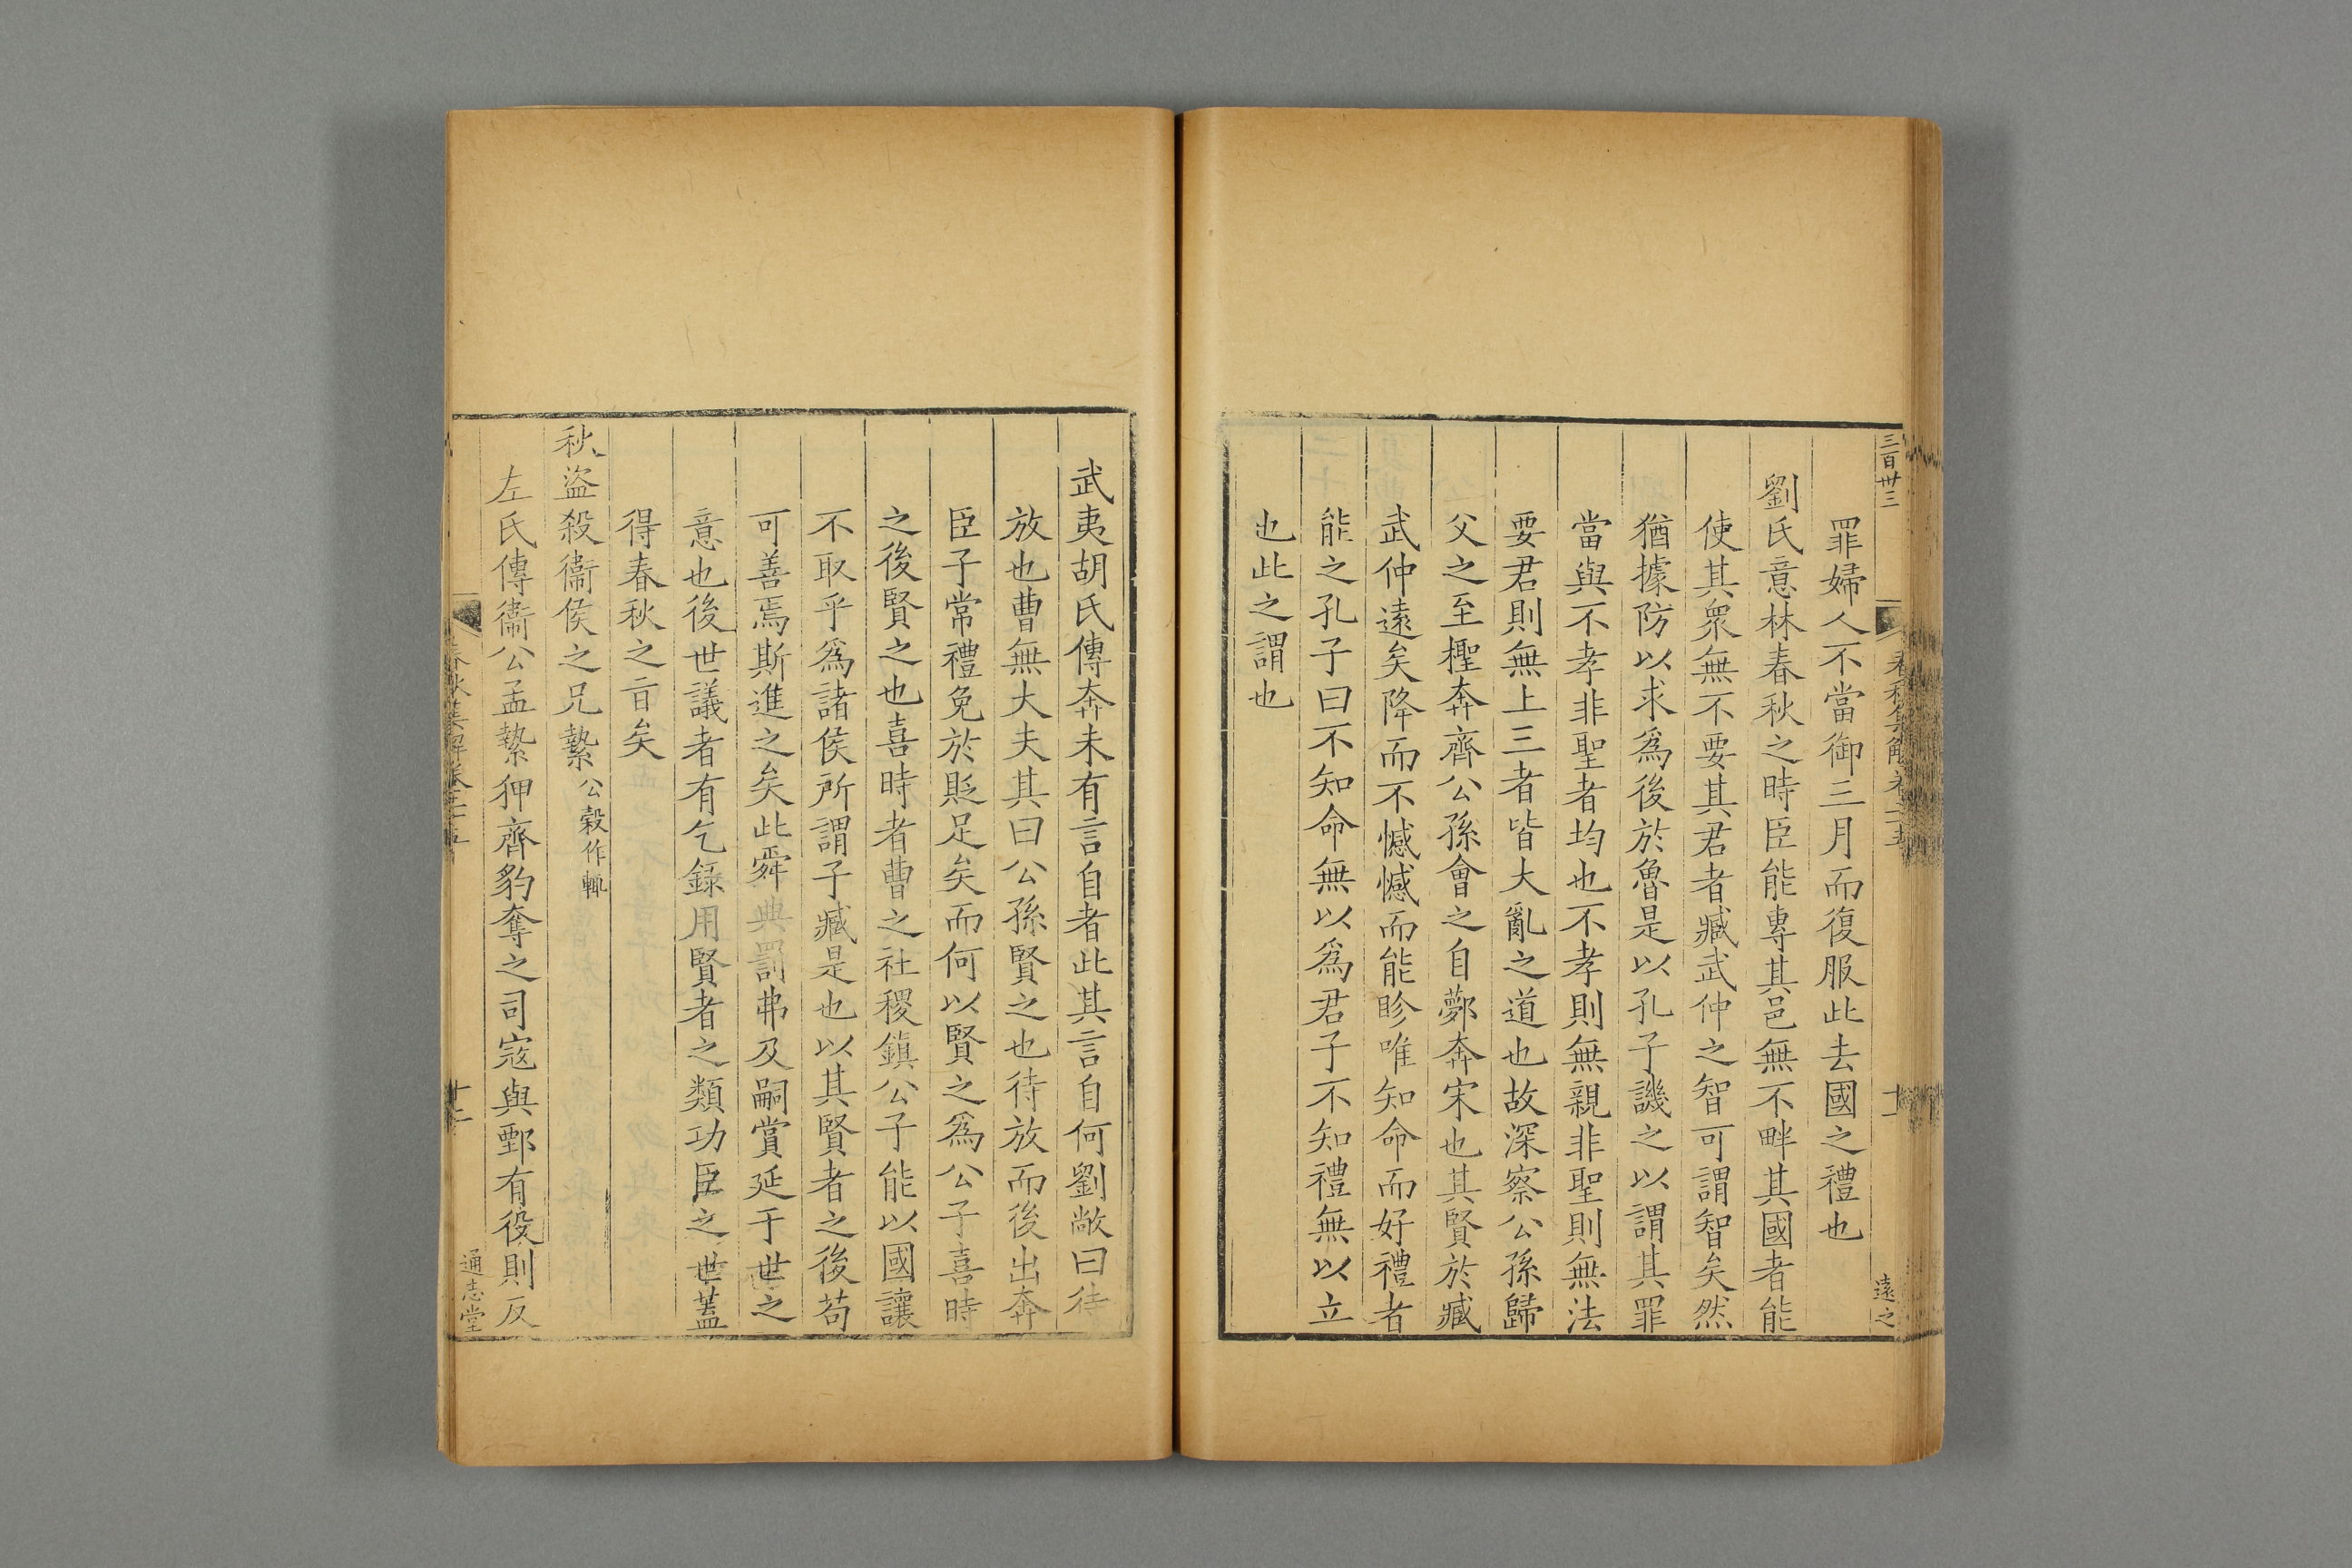 三百卅三
遠之
罪婦人不當御三月而復服此去國之禮也
劉氏意林春秋之時臣能專其邑無不畔其國者能
使其衆無不要其君者臧武仲之智可謂智矣然
猶據防以求爲後於魯是以孔子譏之以謂其罪
當與不孝非聖者均也不孝則無親非聖則無法
要君則無上三者皆大亂之道也故深察公孫歸
父之至檉奔齊公孫會之自鄸奔宋也其賢於臧
武仲遠矣降而不憾憾而能眕唯知命而好禮者
能之孔子曰不知命無以爲君子不知禮無以立
也此之謂也
武夷胡氏傳奔未有言自者此其言自何劉敞曰待
放也曹無大夫其曰公孫賢之也待放而後出奔
臣子常禮免於貶足矣而何以賢之爲公子喜時
之後賢之也喜時者曹之社稷鎮公子能以國讓
不取乎爲諸侯所謂子臧是也以其賢者之後苟
可善焉斯進之矣此舜典罰弗及嗣賞延于世之
意也後世議者有乞錄用賢者之類功臣之世蓋
得春秋之旨矣
秋盜殺衞侯之兄縶公穀作輒
左氏傳衞公孟縶狎齊豹奪之司寇與鄄有役則反
春秋集解卷二十五
十二
通志堂